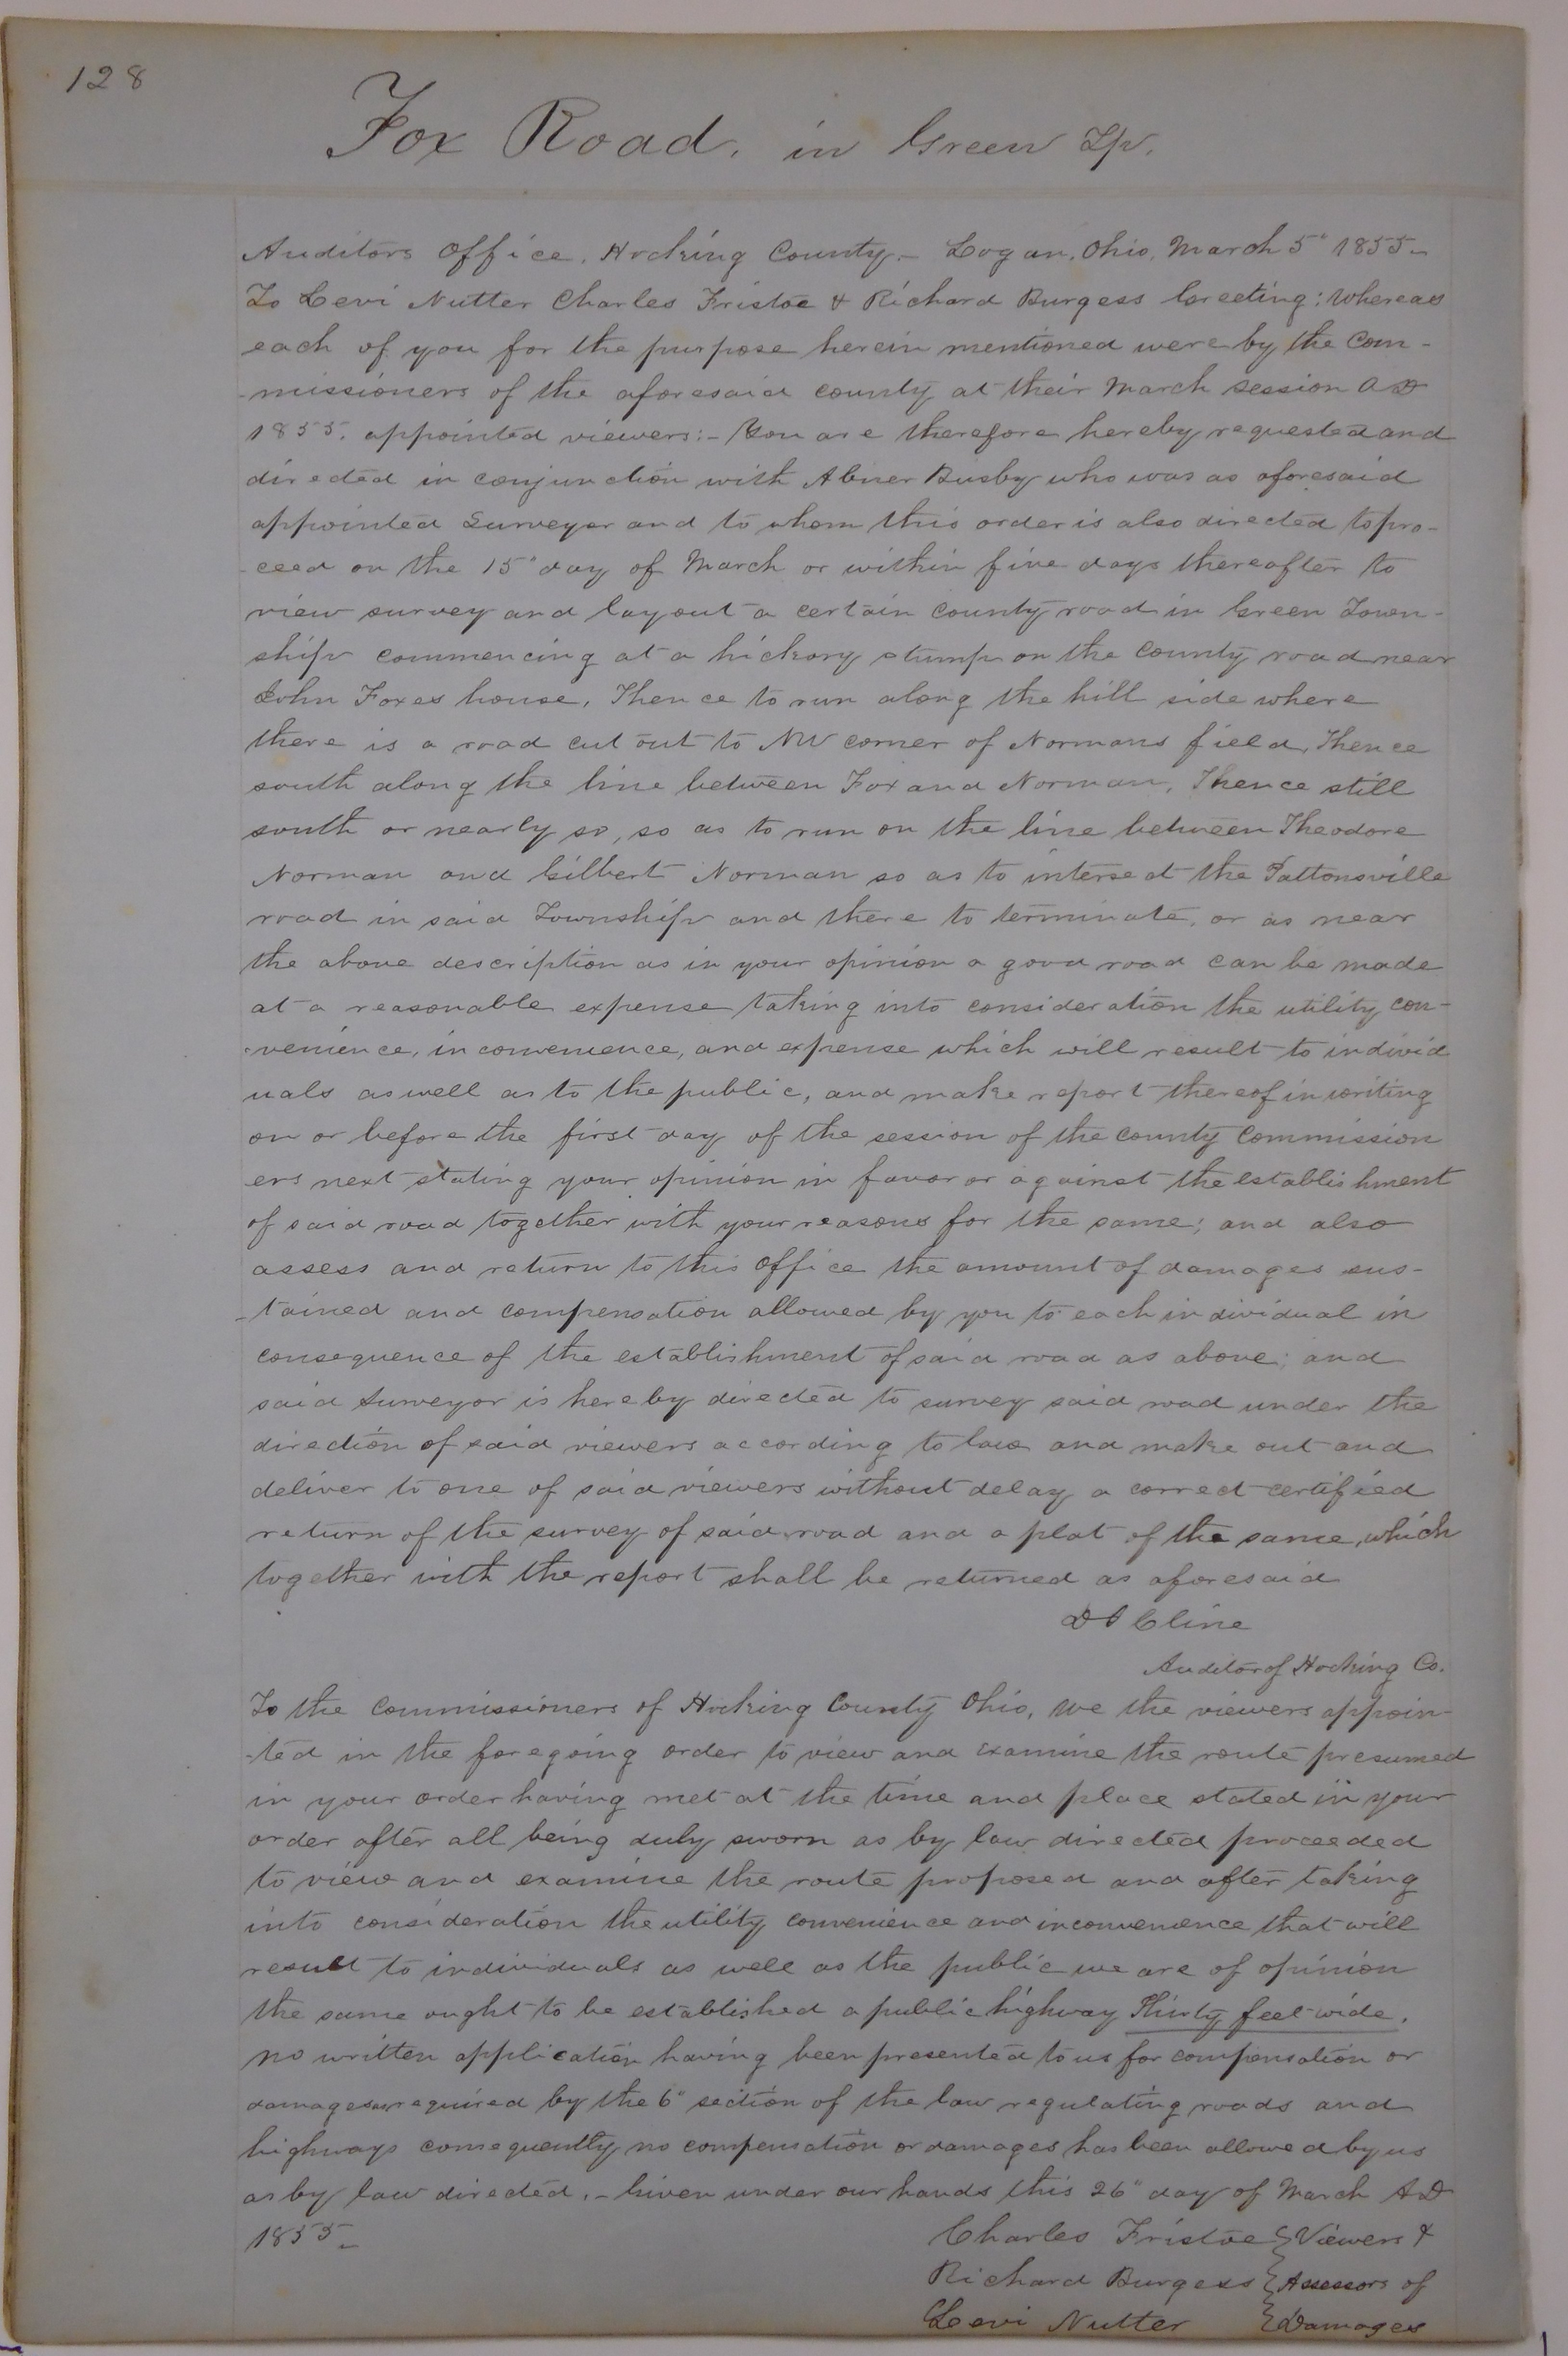 128
Fox Road. in Green Tp.
Auditors Office, Hocking County.- Logan, Ohio, March 5" 1855-
To Levi Nutter Charles Fristoe & Richard Burgess Greeting: Whereas
each of you for the purpose herein mentioned were by the Com-
-missioners of the aforesaid county at their March session AD
1855. appointed viewers:- You are therefore hereby requested and
directed in conjunction with Abner Busby who was as aforesaid
appointed Surveyor and to whom this order is also directed to pro-
-ceed on the 15" day of March or within five days thereafter to
view survey and layout a certain county road in Green Town-
ship commencing at a hickory stump on the county road near
John Foxes house, Thence to run along the hill side where
there is a road cut out to NW corner of Normans field, Thence
south along the line between Fox and Norman, Thence still
south or nearly so, so as to run on the line between Theodore
Norman and Gilbert Norman so as to intersect the Pattonsville
road in said Township and there to terminate, or as near
the above description as in your opinion a good road can be made
at a reasonable expense taking into consideration the utility con-
-venience, inconvenience, and expense which will result to individ
uals as well as to the public, and make report thereof in writing
on or before the first day of the session of the county commission
ers next stating your opinion in favor or against the establishment
of said road together with your reasons for the same; and also
assess and return to this office the amount of damages sus-
-tained and compensation allowed by you to each individual in
consequence of the establishment of said road as above; and
said Surveyor is hereby directed to survey said road under the
direction of said viewers according to law and make out and
deliver to one of said viewers without delay a correct certified
return of the survey of said road and a plat of the same, which
together with the report shall be returned as aforesaid
Cline
Auditor of Hocking Co.
To the Commissioners of Hocking County Ohio, we the viewers appoin-
-ted in the foregoing order to view and examine the route presumed
in your order having met at the time and place stated in your
order after all being duly sworn as by law directed proceeded
to view and examine the route proposed and after taking
into consideration the utility convenience and inconvenience that will
result to individuals as well as the public we are of opinion
the same ought to be established a public highway Thirty feet wide.
no written application having been presented to us for compensation or
damages as required by the 6" section of the law regulating roads and
highways consequently no compensation or damages has been allowed by us
as by law directed.- Given under our hands this 26" day of March AD
1855-
Charles Fristoe } Viewers &
Richard Burgess } Assessors of
Levi Nutter } Damages